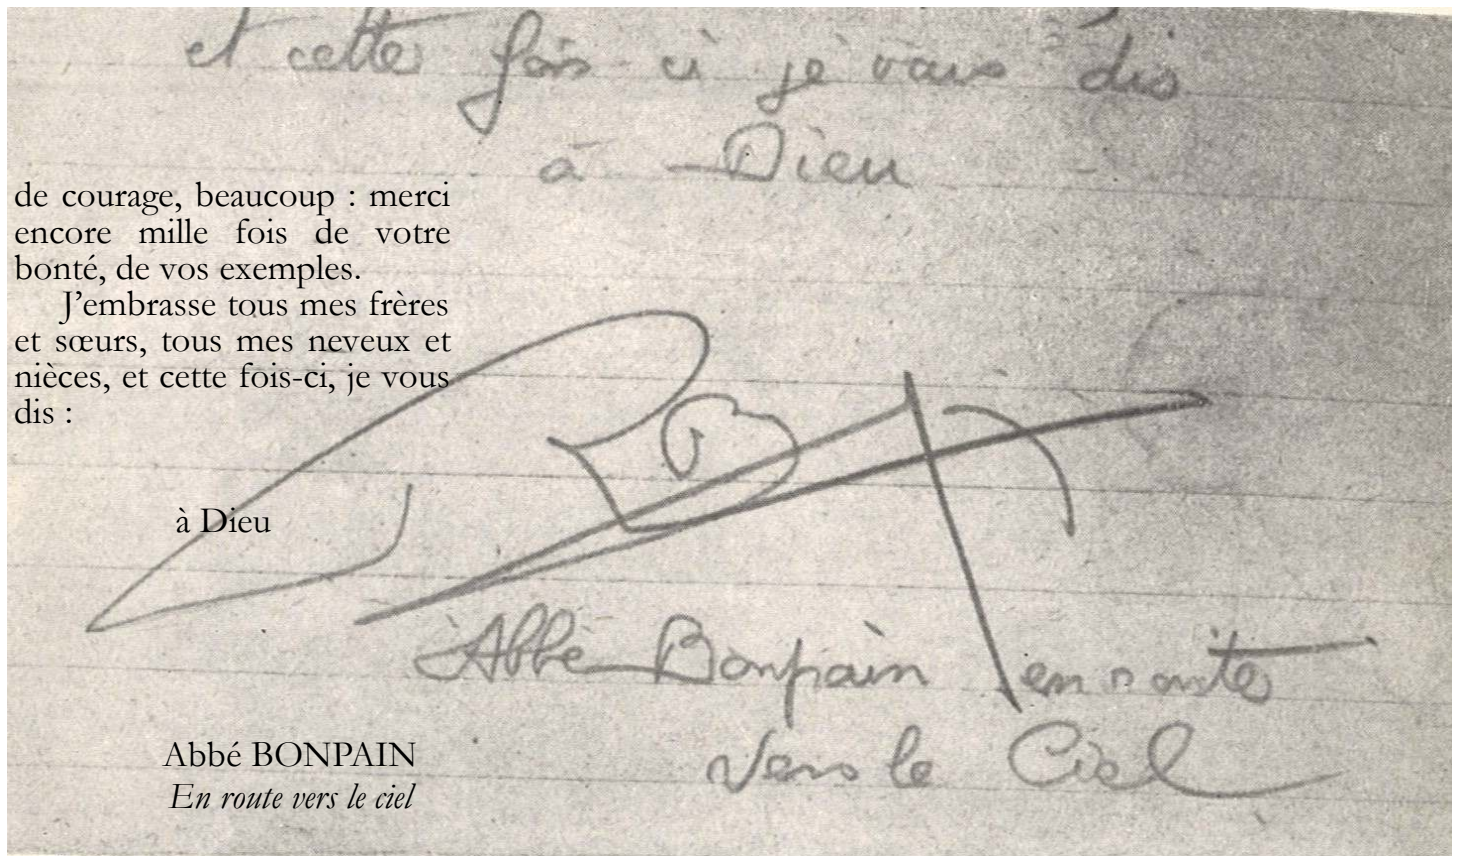 et cette fois ci je vous dis
à Dieu
de courage, beaucoup : merci
encore mille fois de votre
bonté, de vos exemples.
J’embrasse tous mes frères
et sœurs, tous mes neveux et
nièces, et cette fois-ci, je vous
dis :
à Dieu
Abbé Bonpain en route
vers le Ciel
Abbé BONPAIN
En route vers le ciel